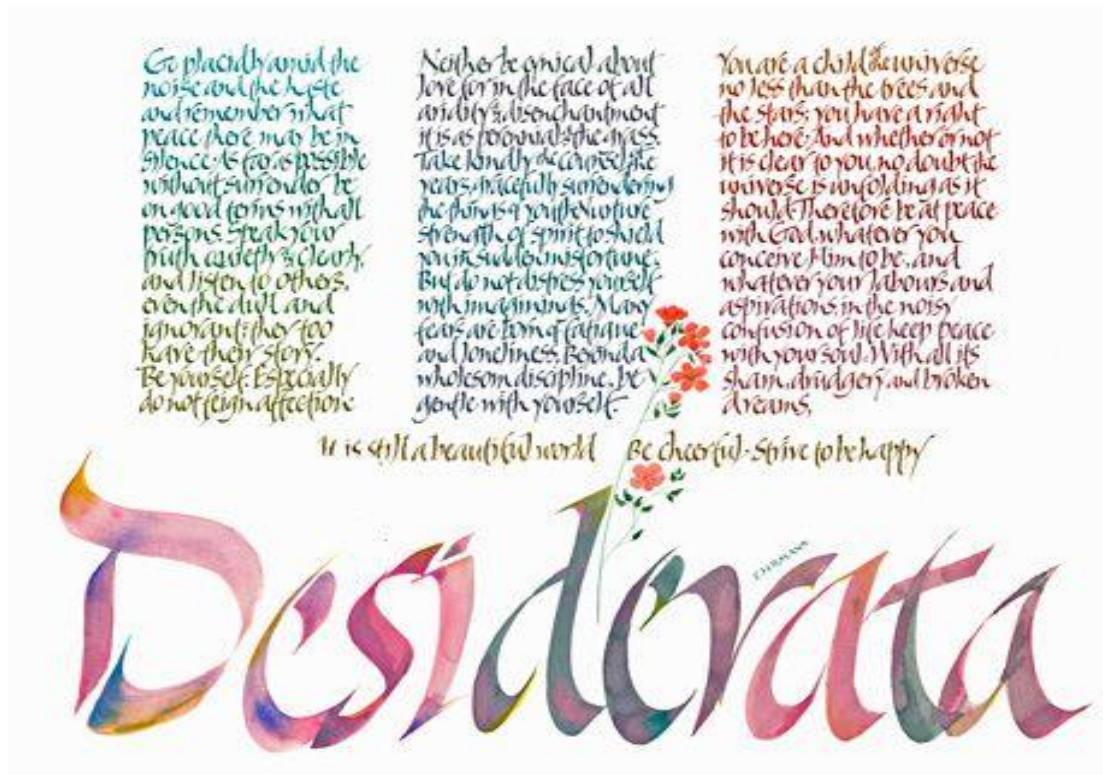 Go placidly amid the
noise and the haste
and remember what
peace there may be in
silence. As far as possible
without surrender be
on good terms with all
persons. Speak your
truth quietly & clearly,
and listen to others,
even the dull and
ignorant; they too
have their story.
Be yourself. Especially
do not feign affection.
Neither be cynical about
love for in the face of all
aridity & disenchantment
it is as perennial as the grass.
Take kindly the counsel of the
years, gracefully surrendering
the things of youth. Nurture
strength of spirit to shield
you in sudden misfortune.
But do not distress yourself
with imaginings. Many
fears are born of fatigue
and loneliness. Beyond a
wholesom discipline, be
gentle with yourself.
You are a child of the universe
no less than the trees and
the stars; you have a right
to be here. And whether or not
it is clear to you, no doubt the
universe is unfolding as it
should. Therefore be at peace
with God, whatever you
conceive Him to be, and
whatever your labours and
aspirations, in the noisy
confusion of life keep peace
with your soul. With all its
sham, drudgery and broken
dreams,
It is still a beautiful world Be cheerful. Strive to be happy
Desiderata